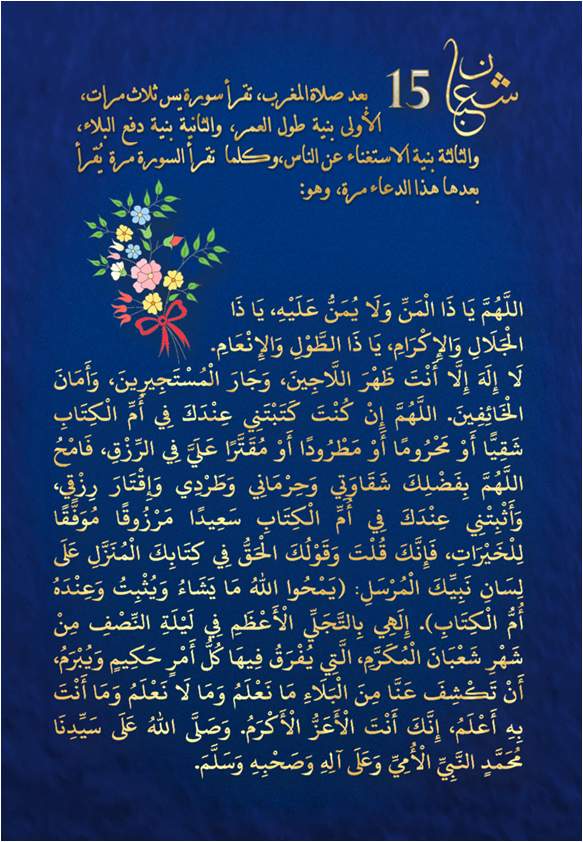 15 شعبان
بعد صلاة المغرب، تقرأ سورة يس ثلاث مرات،
الأولى بنية طول العمر، والثانية بنية دفع البلاء،
والثالثة بنية الاستغناء عن الناس،وكلما تقرأ السورة مرة يُقرأ
بعدها هذا الدعاء مرة، وهو:
اللَّهُمَّ يَا ذَا الْمَنِّ وَلَا يُمَنُّ عَلَيْهِ، يَا ذَا
الْجَلَالِ وَالإِكْرَامِ، يَا ذَا الطَّوْلِ وَالإِنْعَامِ.
لَا إِلَهَ إِلَّا أَنْتَ ظَهْرَ اللَّاجِينَ، وَجَارَ الْمُسْتَجِيرِينَ، وَأَمَانَ
الْخَائِفِينَ. اللَّهُمَّ إِنْ كُنْتَ كَتَبْتَنِي عِنْدَكَ فِي أُمِّ الْكِتَابِ
شَقِيًّا أَوْ مَحْرُومًا أَوْ مَطْرُودًا أَوْ مُقَتَّرًا عَلَيَّ فِي الرِّزْقِ، فَامْحُ
اللَّهُمَّ بِفَضْلِكَ شَقَاوَتِي وَحِرْمَانِي وَطَرْدِي وَإِقْتَارَ رِزْقِي،
وَأَثْبِتْنِي عِنْدَكَ فِي أُمِّ الْكِتَابِ سَعِيدًا مَرْزُوقًا مُوَفَّقًا
لِلْخَيْرَاتِ، فَإِنَّكَ قُلْتَ وَقَوْلُكَ الْحَقُّ فِي كِتَابِكَ الْمُنَزَّلِ عَلَى
لِسَانِ نَبِيِّكَ الْمُرْسَلِ: (يَمْحُوا اللهُ مَا يَشَاءُ وَيُثْبِتُ وَعِنْدَهُ
أُمُّ الْكِتَابِ). إِلَهِي بِالتَّجَلِّي الْأَعْظَمِ فِي لَيْلَةِ النِّصْفِ مِنْ
شَهْرِ شَعْبَانَ الْمُكَرَّمِ، الَّتِي يُفْرَقُ فِيهَا كُلُّ أَمْرٍ حَكِيمٍ وَيُبْرَمُ،
أَنْ تَكْشِفَ عَنَّا مِنَ الْبَلَاءِ مَا نَعْلَمُ وَمَا لَا نَعْلَمُ وَمَا أَنْتَ
بِهِ أَعْلَمُ، إِنَّكَ أَنْتَ الْأَعَزُّ الْأَكْرَمُ. وَصَلَّى اللهُ عَلَى سَيِّدِنَا
مُحَمَّدٍ النَّبِيِّ الْأُمِيِّ وَعَلَى آلِهِ وَصَحْبِهِ وَسَلَّمَ.